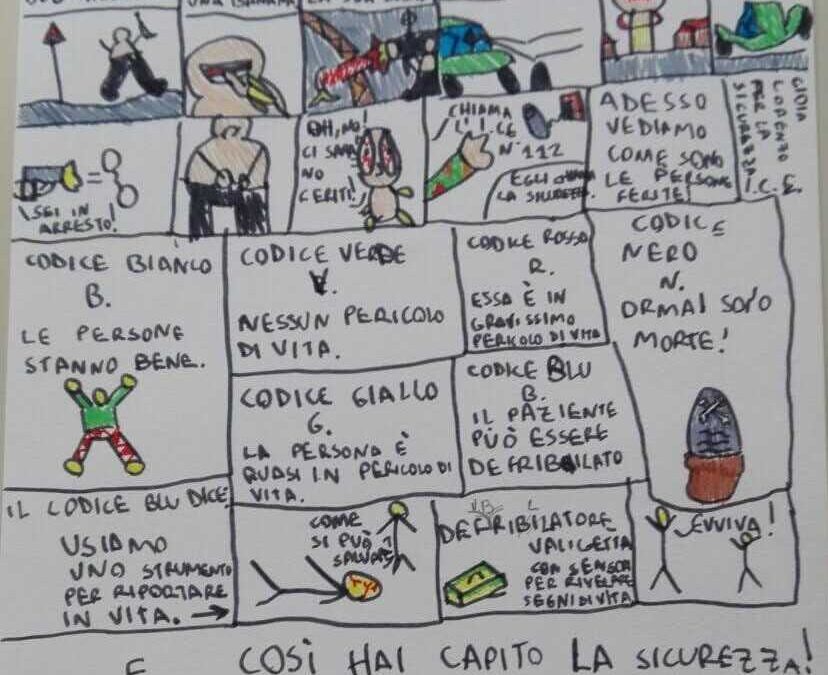 UNA BANANA
SEI IN
ARRESTO!
OH, NO!
CI SONO
NO
FERITI!
CHIAMA
L' I.C.E
N° 112
EGLI CHIAMA
LA SICUREZZA.
ADESSO
VEDIAMO
COME SONO
LE PERSONE
FERITE!
GIOIA
LORENZO
PER LA
SICUREZZA
I.C.E.
CODICE BIANCO
B.
LE PERSONE
STANNO BENE.
CODICE VERDE
V.
NESSUN PERICOLO
DI VITA.
CODICE GIALLO
G.
LA PERSONA È
QUASI IN PERICOLO DI
VITA.
CODICE ROSSO
R.
ESSA È IN
GRAVISSIMO
PERICOLO DI VITA
CODICE BLU
B.
IL PAZIENTE
PUÒ ESSERE
DEFRIBILATO
CODICE
NERO
N.
ORMAI SONO
MORTE!
IL CODICE BLU DICE
USIAMO
UNO STRUMENTO
PER RIPORTARE
IN VITA. →
COME
SI PUÒ
SALVARE?
DEFRIBILATORE
VALIGETTA
CON SENSORI
PER RIVELARE
SEGNI DI VITA
EVVIVA!
E COSÌ HAI CAPITO LA SICUREZZA!